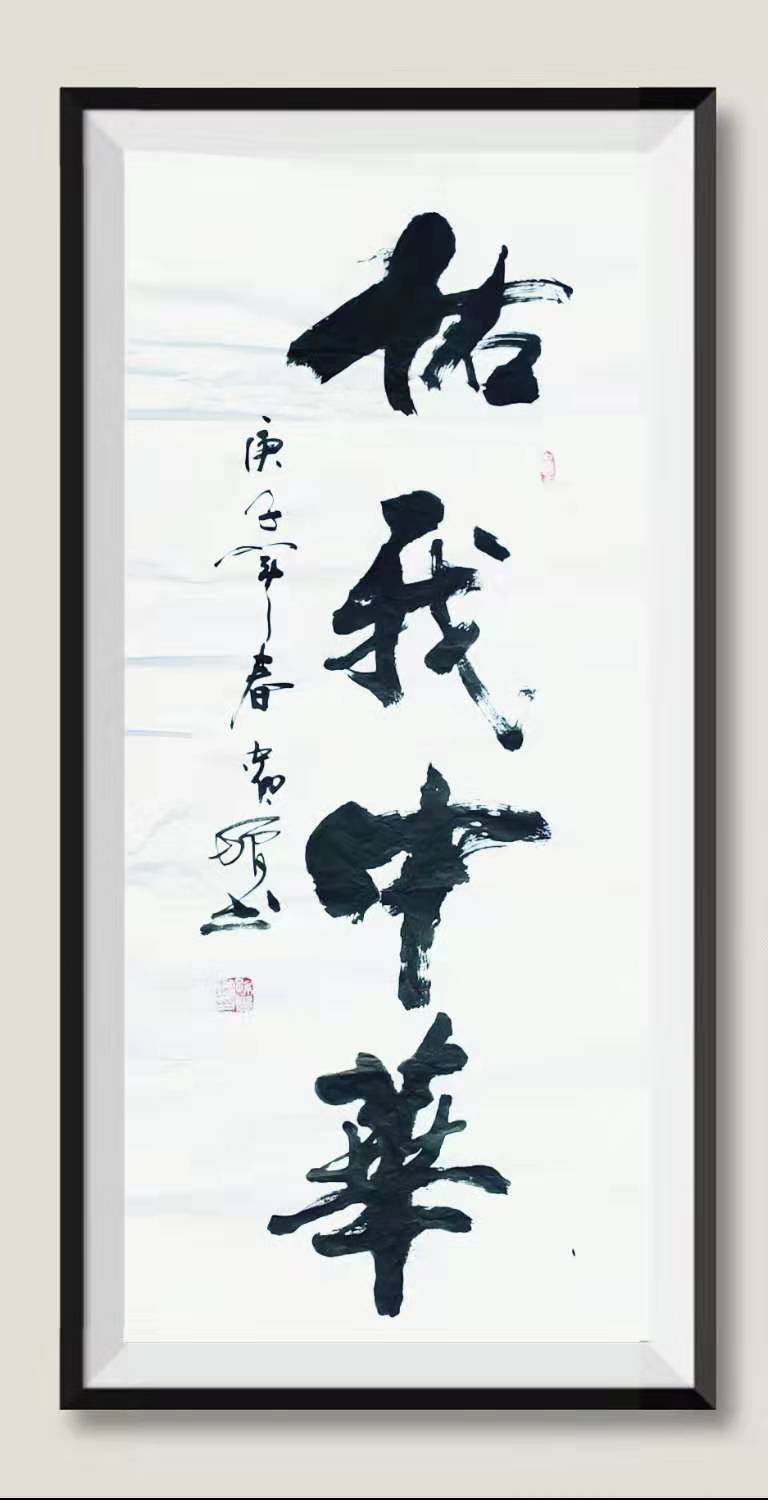 佑我中華
庚子年春